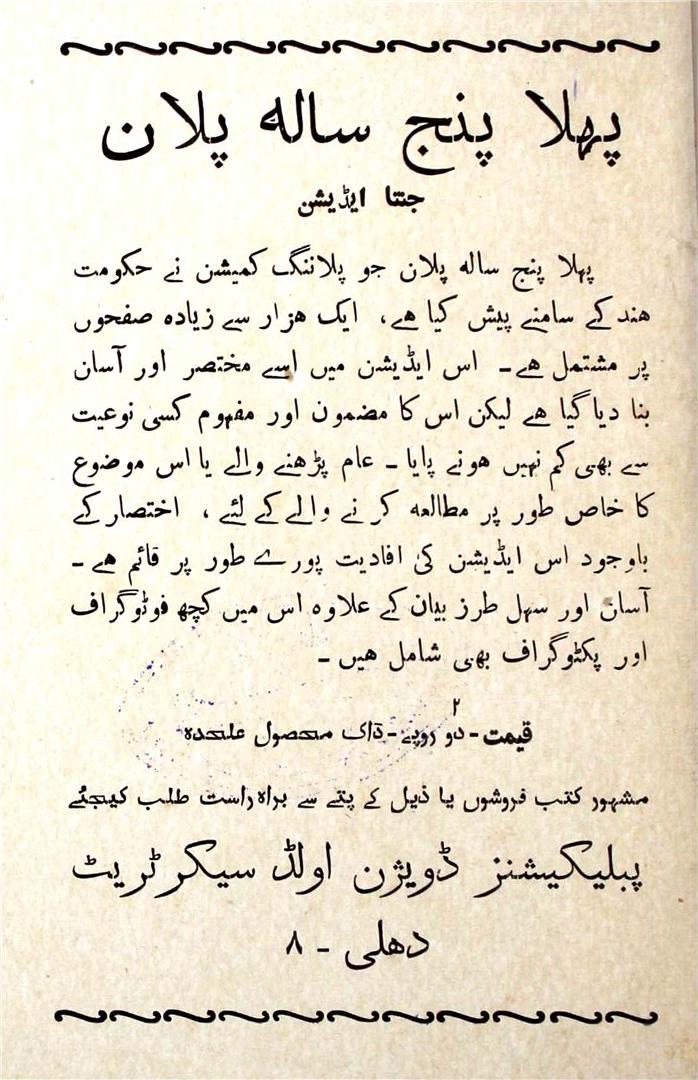 پہلا پنج سالہ پلان
جنتا ایڈیشن
پہلا پنج سالہ پلان جو پلاننگ کمیشن نے حکومت
ہند کے سامنے پیش کیا ہے، ایک ہزار سے زیادہ صفحوں
پر مشتمل ہے۔ اس ایڈیشن میں اسے مختصر اور آسان
بنا دیا گیا ہے لیکن اس کا مضمون اور مفہوم کسی نوعیت
سے بھی کم نہیں ہونے پایا ۔ عام پڑھنے والے یا اس موضوع
کا خاص طور پر مطالعہ کرنے والے کے لئے ، اختصار کے
باوجود اس ایڈیشن کی افادیت پورے طور پر قائم ہے ۔
آسان اور سہل طرز بیان کے علاوہ اس میں کچھ فوٹوگراف
اور پکٹوگراف بھی شامل ہیں ۔
۲
قیمت ۔ دو روپے ۔ ڈاک محصول علحدہ
مشہور کتب فروشوں یا ذیل کے پتے سے براہ راست طلب کیجئے
پبلیکیشنز ڈویژن اولڈ سیکرٹریٹ
دہلی ۔ ۸